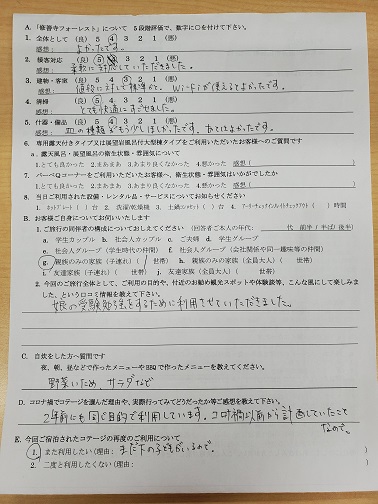 A.「修善寺フォーレスト」について 5段階評価で、数字に○を付けて下さい。
1. 全体として (良) 5 4 3 2 1 (悪)
感想: よかったです。
2. 接客対応 (良) 5 4 3 2 1 (悪)
感想: 柔軟に対応していただきました。
3. 建物・客室 (良) 5 4 3 2 1 (悪)
感想: 値段に対して標準かと。Wi-Fiが使えてよかったです。
4. 清掃 (良) 5 4 3 2 1 (悪)
感想: とても快適にすごせました。
5. 什器・備品 (良) 5 4 3 2 1 (悪)
感想: 皿の種類がもう少しほしかったです。おてはよかったです。
6. 専用露天付きタイプ又は展望岩風呂付大型棟タイプをご利用いただいたお客様へのご質問です
a. 露天風呂・展望風呂の衛生状態・雰囲気について
1.とても良かった 2.まあまあ 3.あまり良くなかった 4.悪かった 感想(
7. バーベQコーナーをご利用いただいたお客様へ、衛生状態・雰囲気はいかがでしたか
1.とても良かった 2.まあまあ 3.あまり良くなかった 4.悪かった 感想(
8. 当日ご利用された設備・レンタル品・サービスについてお知らせください
B. お客様ご自身についてお伺いいたします
1. ご旅行の同伴者の構成についておしえてください (回答者ご本人の年代: 代 前半 / 半ば / 後半)
a. 学生カップル b. 社会人カップル c. ご夫婦 d. 学生グループ
e. 社会人グループ (学生時代の仲間) f. 社会人グループ (会社関係や同一趣味等の仲間)
g. 親族のみの家族 (子連れ) ( / 世帯) h. 親族のみの家族 (全員大人) ( 世帯)
i. 友達家族 (子連れ) ( 世帯) j. 友達家族 (全員大人) ( 世帯)
2. 今回のご旅行全体として、ご利用の目的や、付近のお勧め観光スポットや体験談等、こんな風にして楽しみました、という口コミ情報を教えて下さい。
娘の受験勉強をするために利用させていただきました。
C. 自炊をした方へ質問です
夜、朝、昼などで作ったメニューやBBQで作ったメニューを教えてください。
野菜いため、サラダなど
D. コロナ禍でコテージを選んだ理由や、実際行ってみてどうだったか等ご感想を教えて下さい。
2年前にも同じ目的で利用しています。コロナ禍以前から計画していたこと
なので。
E. 今回ご宿泊されたコテージの再度のご利用について
1. また利用したい (理由: まだ下の子どもがいるので。
2. 二度と利用したくない (理由: